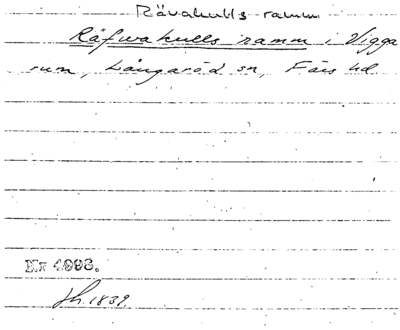 Rävakulls ramm
Räfwakulls ramm i Vigga
rum, Långaröd sn, Färs hd
Nr 4098.
1839